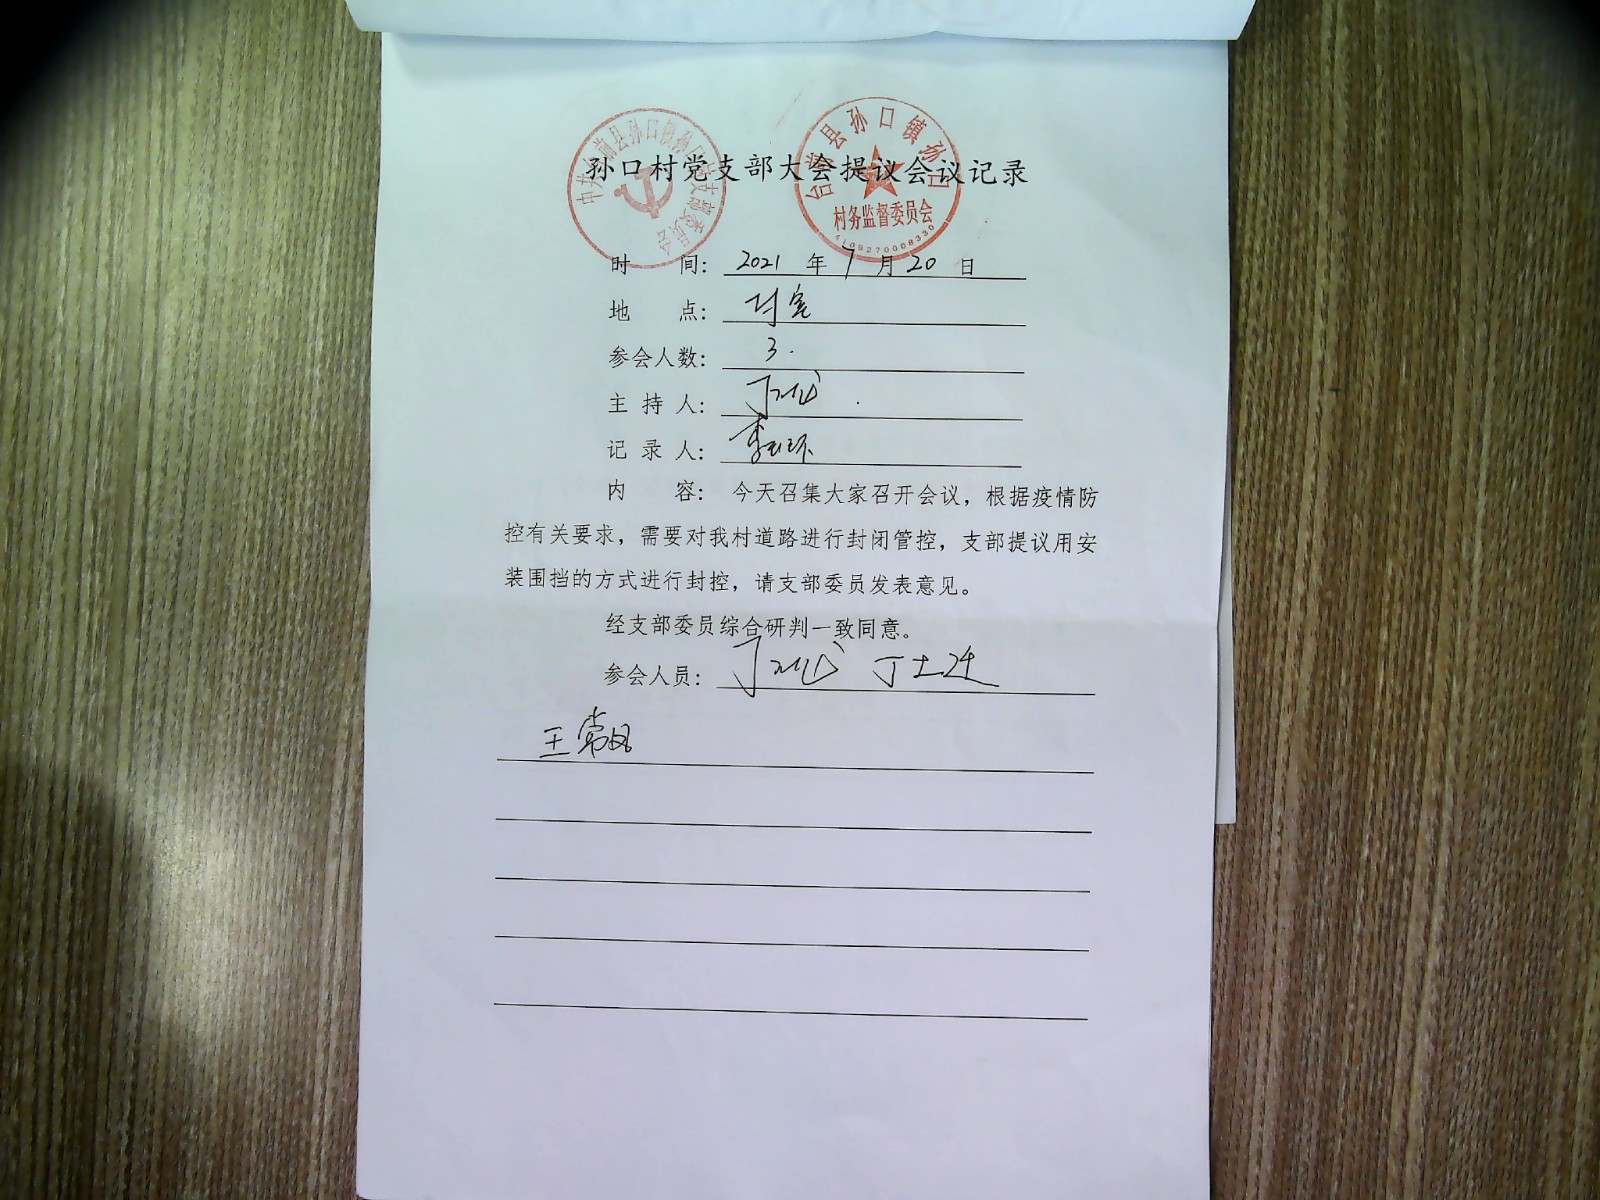 孙口村党支部大会提议会议记录
中共台前县孙口镇孙口村支部委员会
台前县孙口镇孙口
村务监督委员会
4109270008330
时 间: 2021 年 7 月 20 日
地 点: 村室
参会人数: 3.
主 持 人:
记 录 人: 李玉环
内 容: 今天召集大家召开会议，根据疫情防
控有关要求，需要对我村道路进行封闭管控，支部提议用安
装围挡的方式进行封控，请支部委员发表意见。
经支部委员综合研判一致同意。
参会人员: 丁士迁
王常风